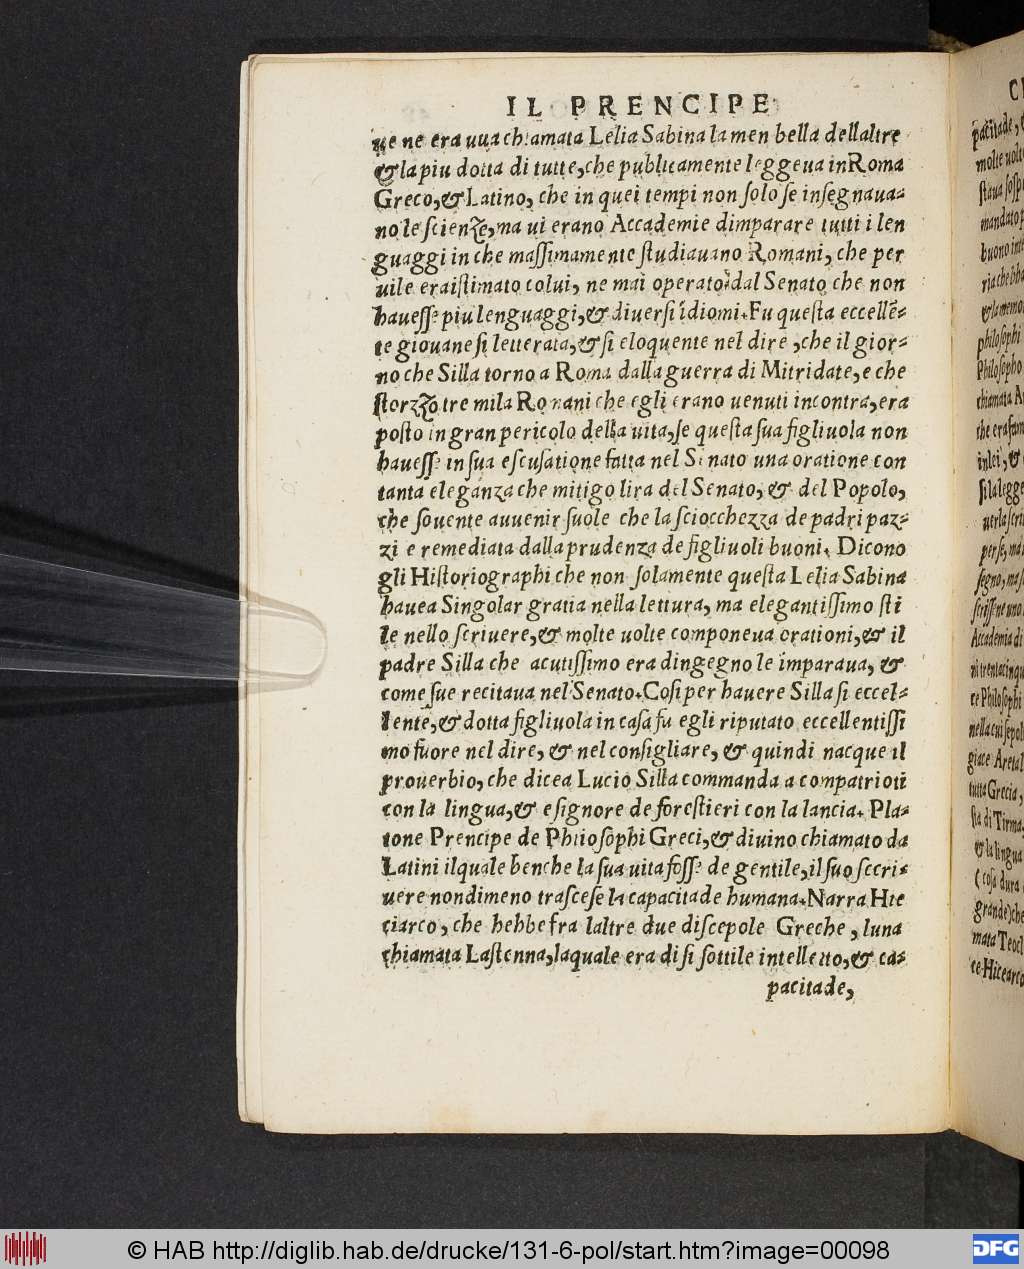 IL PRENCIPE
ue ne era uua chiamata Lelia Sabina la men bella dellaltre
& la piu dotta di tutte, che publicamente leggeua in Roma
Greco, & Latino, che in quei tempi non solo se insegnaua=
no le scienze, ma ui erano Accademie dimparare tutti i len
guaggi in che massimamente studiauano Romani, che per
uile era istimato colui, ne mai operato dal Senato che non
hauesse piu lenguaggi, & diuersi idiomi. Fu questa eccellẽ=
te giouane si letterata, & si eloquente nel dire, che il gior=
no che Silla torno a Roma dalla guerra di Mitridate, e che
storzzo tre mila Romani che egli erano uenuti incontra, era
posto in gran pericolo della uita, se questa sua figliuola non
hauesse in sua escusatione fatta nel Senato una oratione con
tanta eleganza che mitigo lira del Senato, & del Popolo,
che souente auuenir suole che la sciocchezza de padri paz=
zi e remediata dalla prudenza de figliuoli buoni. Dicono
gli Historiographi che non solamente questa Lelia Sabina
hauea Singolar gratia nella lettura, ma elegantissimo sti
le nello scriuere, & molte uolte componeua orationi, & il
padre Silla che acutissimo era dingegno le imparaua, &
come sue recitaua nel Senato. Cosi per hauere Silla si eccel=
lente, & dotta figliuola in casa fu egli riputato eccellentissi
mo fuore nel dire, & nel consigliare, & quindi nacque il
prouerbio, che dicea Lucio Silla commanda a compatrioti
con la lingua, & e signore de forestieri con la lancia. Pla=
tone Prencipe de Philosophi Greci, & diuino chiamato da
Latini il quale benche la sua uita fosse de gentile, il suo scri=
uere nondimeno trascese la capacitade humana. Narra Hie
ciarco, che hebbe fra laltre due discepole Greche, luna
chiamata Lastenna, laquale era di si sottile intelletto, & ca=
pacitade,
pacitade,
molte uolte
staua sosp
mandato p
buono inte
ria che hba
& la memo
philosophi
Philosopho
chiamata A
che era fam
in lei, & 
si la legge
uer la scri
per se, ma
segno, ma s
scrisse uno
Accademia di
ni trentacinqu
ce Philosophi
nella cui sepol
giace Areta l
tutta Grecia,
sta di Tirma,
& la lingua
( cosa dura
grande) che
mata Teocl
ce Hicearco
© HAB http://diglib.hab.de/drucke/131-6-pol/start.htm?image=00098
DFG